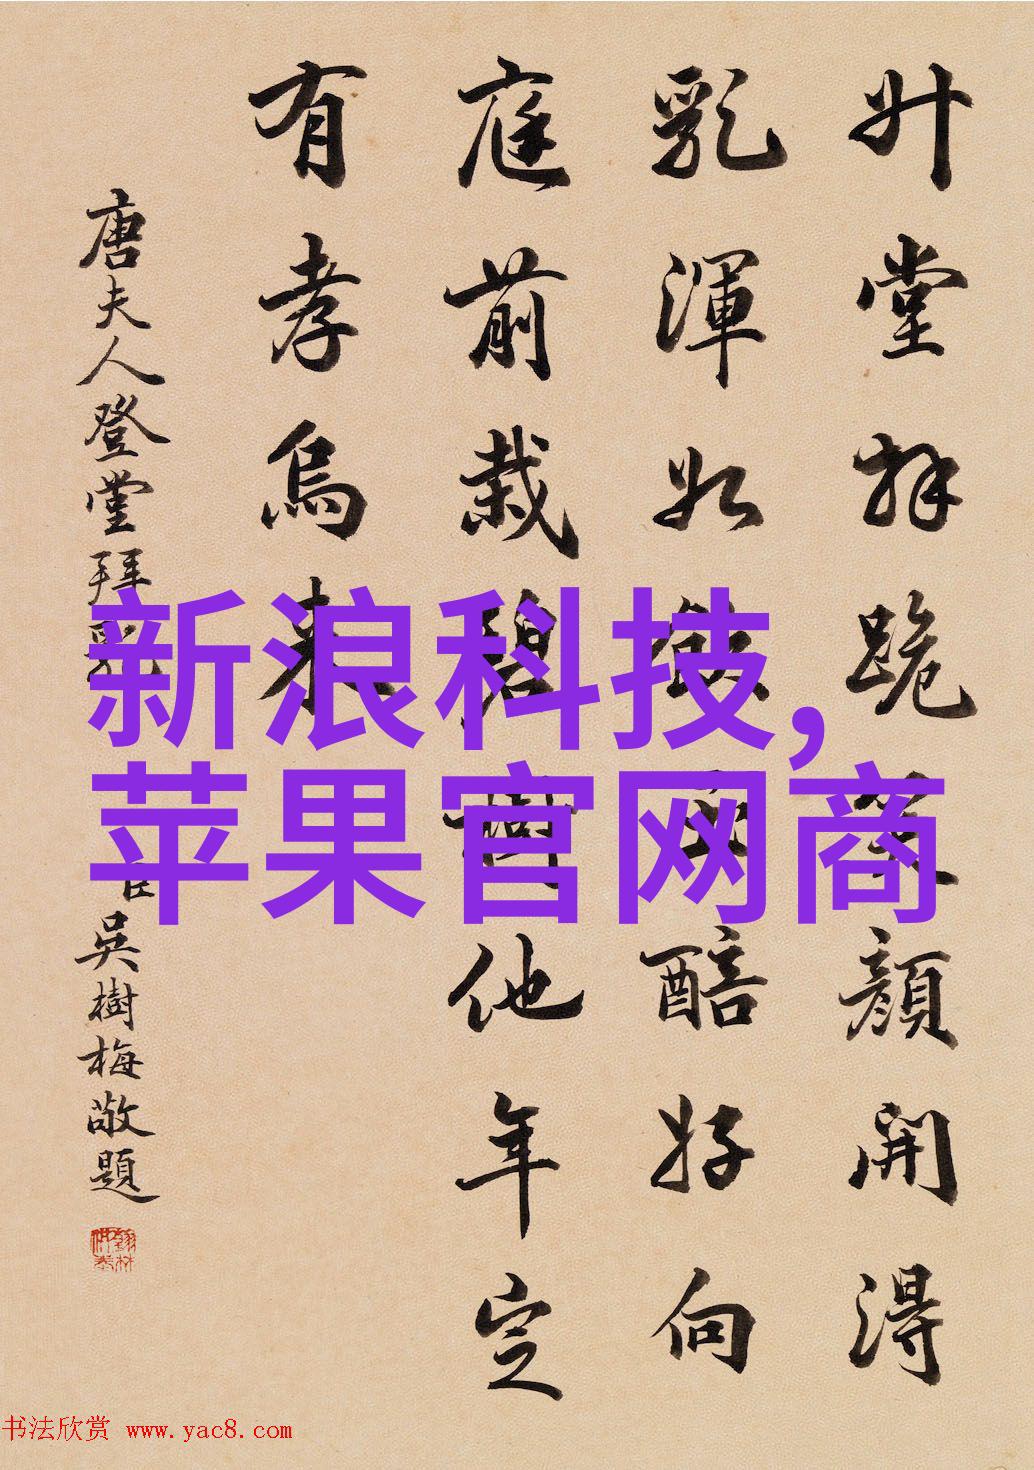 升堂拜跪笑顏開得
乳渾如飲酒醅好向
庭前栽碧樹他年定
有孝烏來
唐夫人登堂拜乳
臣吳樹梅敬題
新浪科技,
苹果官网商
书法欣赏 www.yac8.com